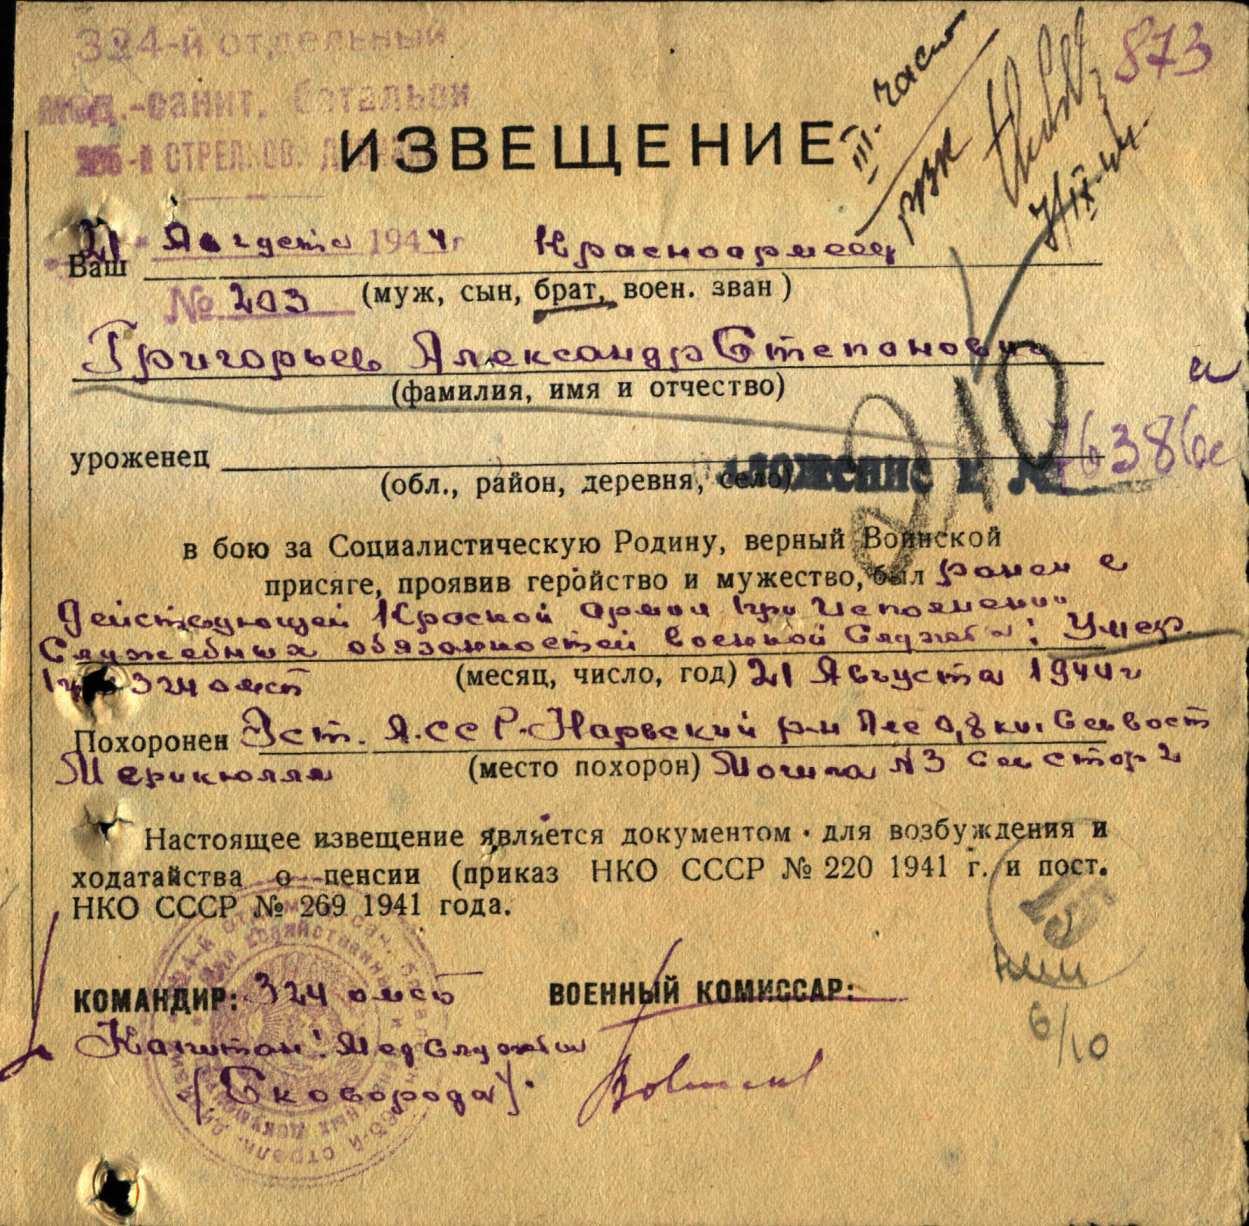 324-й отдельный
мед.-санит. батальон
СТРЕЛКОВ.
ИЗВЕЩЕНИЕ
873
III. часть
РВК
21 Августа 1944 г
Ваш Красноармеец
№ 203 (муж, сын, брат, воен. зван)
Григорьев Александр Степанович
(фамилия, имя и отчество)
уроженец
(обл., район, деревня, село)
210
в бою за Социалистическую Родину, верный Воинской
присяге, проявив геройство и мужество, был ранен в
действующей Красной армии при исполнении
Служебных обязанностей военной Службы: Умер
324 омсб (месяц, число, год) 21 Августа 1944 г
Похоронен Эст. ССР Нарвский р-н
Мерикюлля (место похорон) Могила №3
Настоящее извещение является документом для возбуждения и
ходатайства о пенсии (приказ НКО СССР № 220 1941 г. и пост.
НКО СССР № 269 1941 года.
КОМАНДИР: 324 омсб ВОЕННЫЙ КОМИССАР:
Капитан Мед Службы
(Сковорода)
6/10